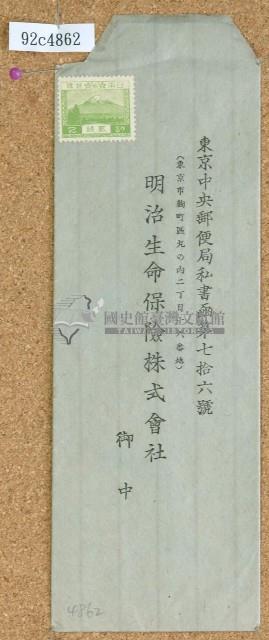 92c4862
東京中央郵便局私書函第七拾六號
(東京市麴町區丸の内二丁目 六番地)
明治生命保險株式會社
御中
國史館臺灣文獻館
TAIWAN HISTORICA
4862